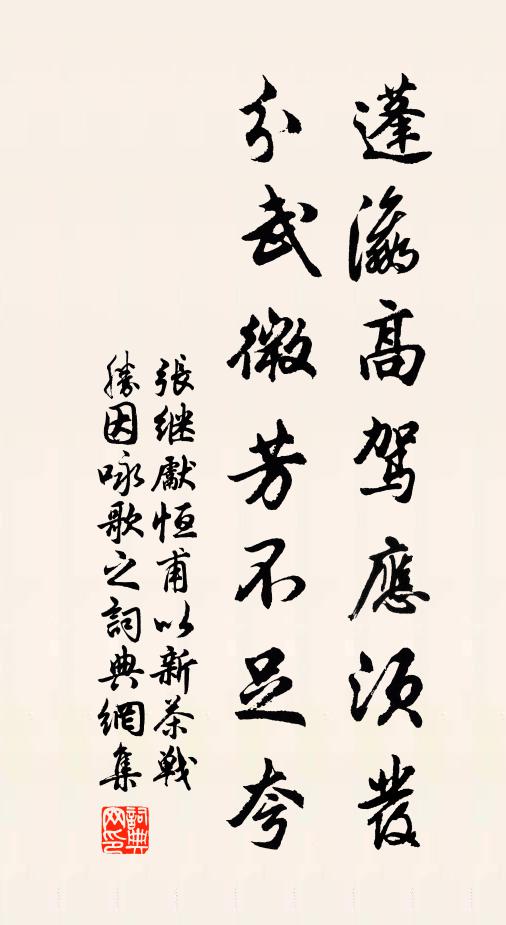 蓬瀛高駕應須發
分武微芳不足夸
張继獻恒甫以新茶戰
勝因咏歌之詞典網集
詞典網印